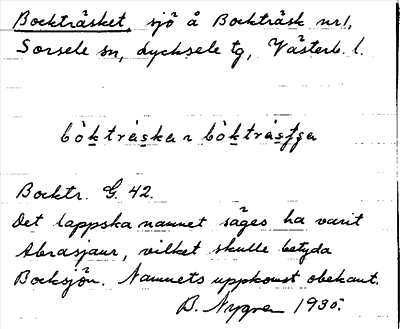 Bockträsket, sjö å Bockträsk nr 1,
Sorsele sn, Lycksele tg, Västerb. l.
bòktràska ~ bòktràsṭṣa
Bocktr. G. 42.
Det lappska namnet säges ha varit
Abrasjaur, vilket skulle betyda
Bocksjön. Namnets uppkomst obekant.
B. Nygren 1935.